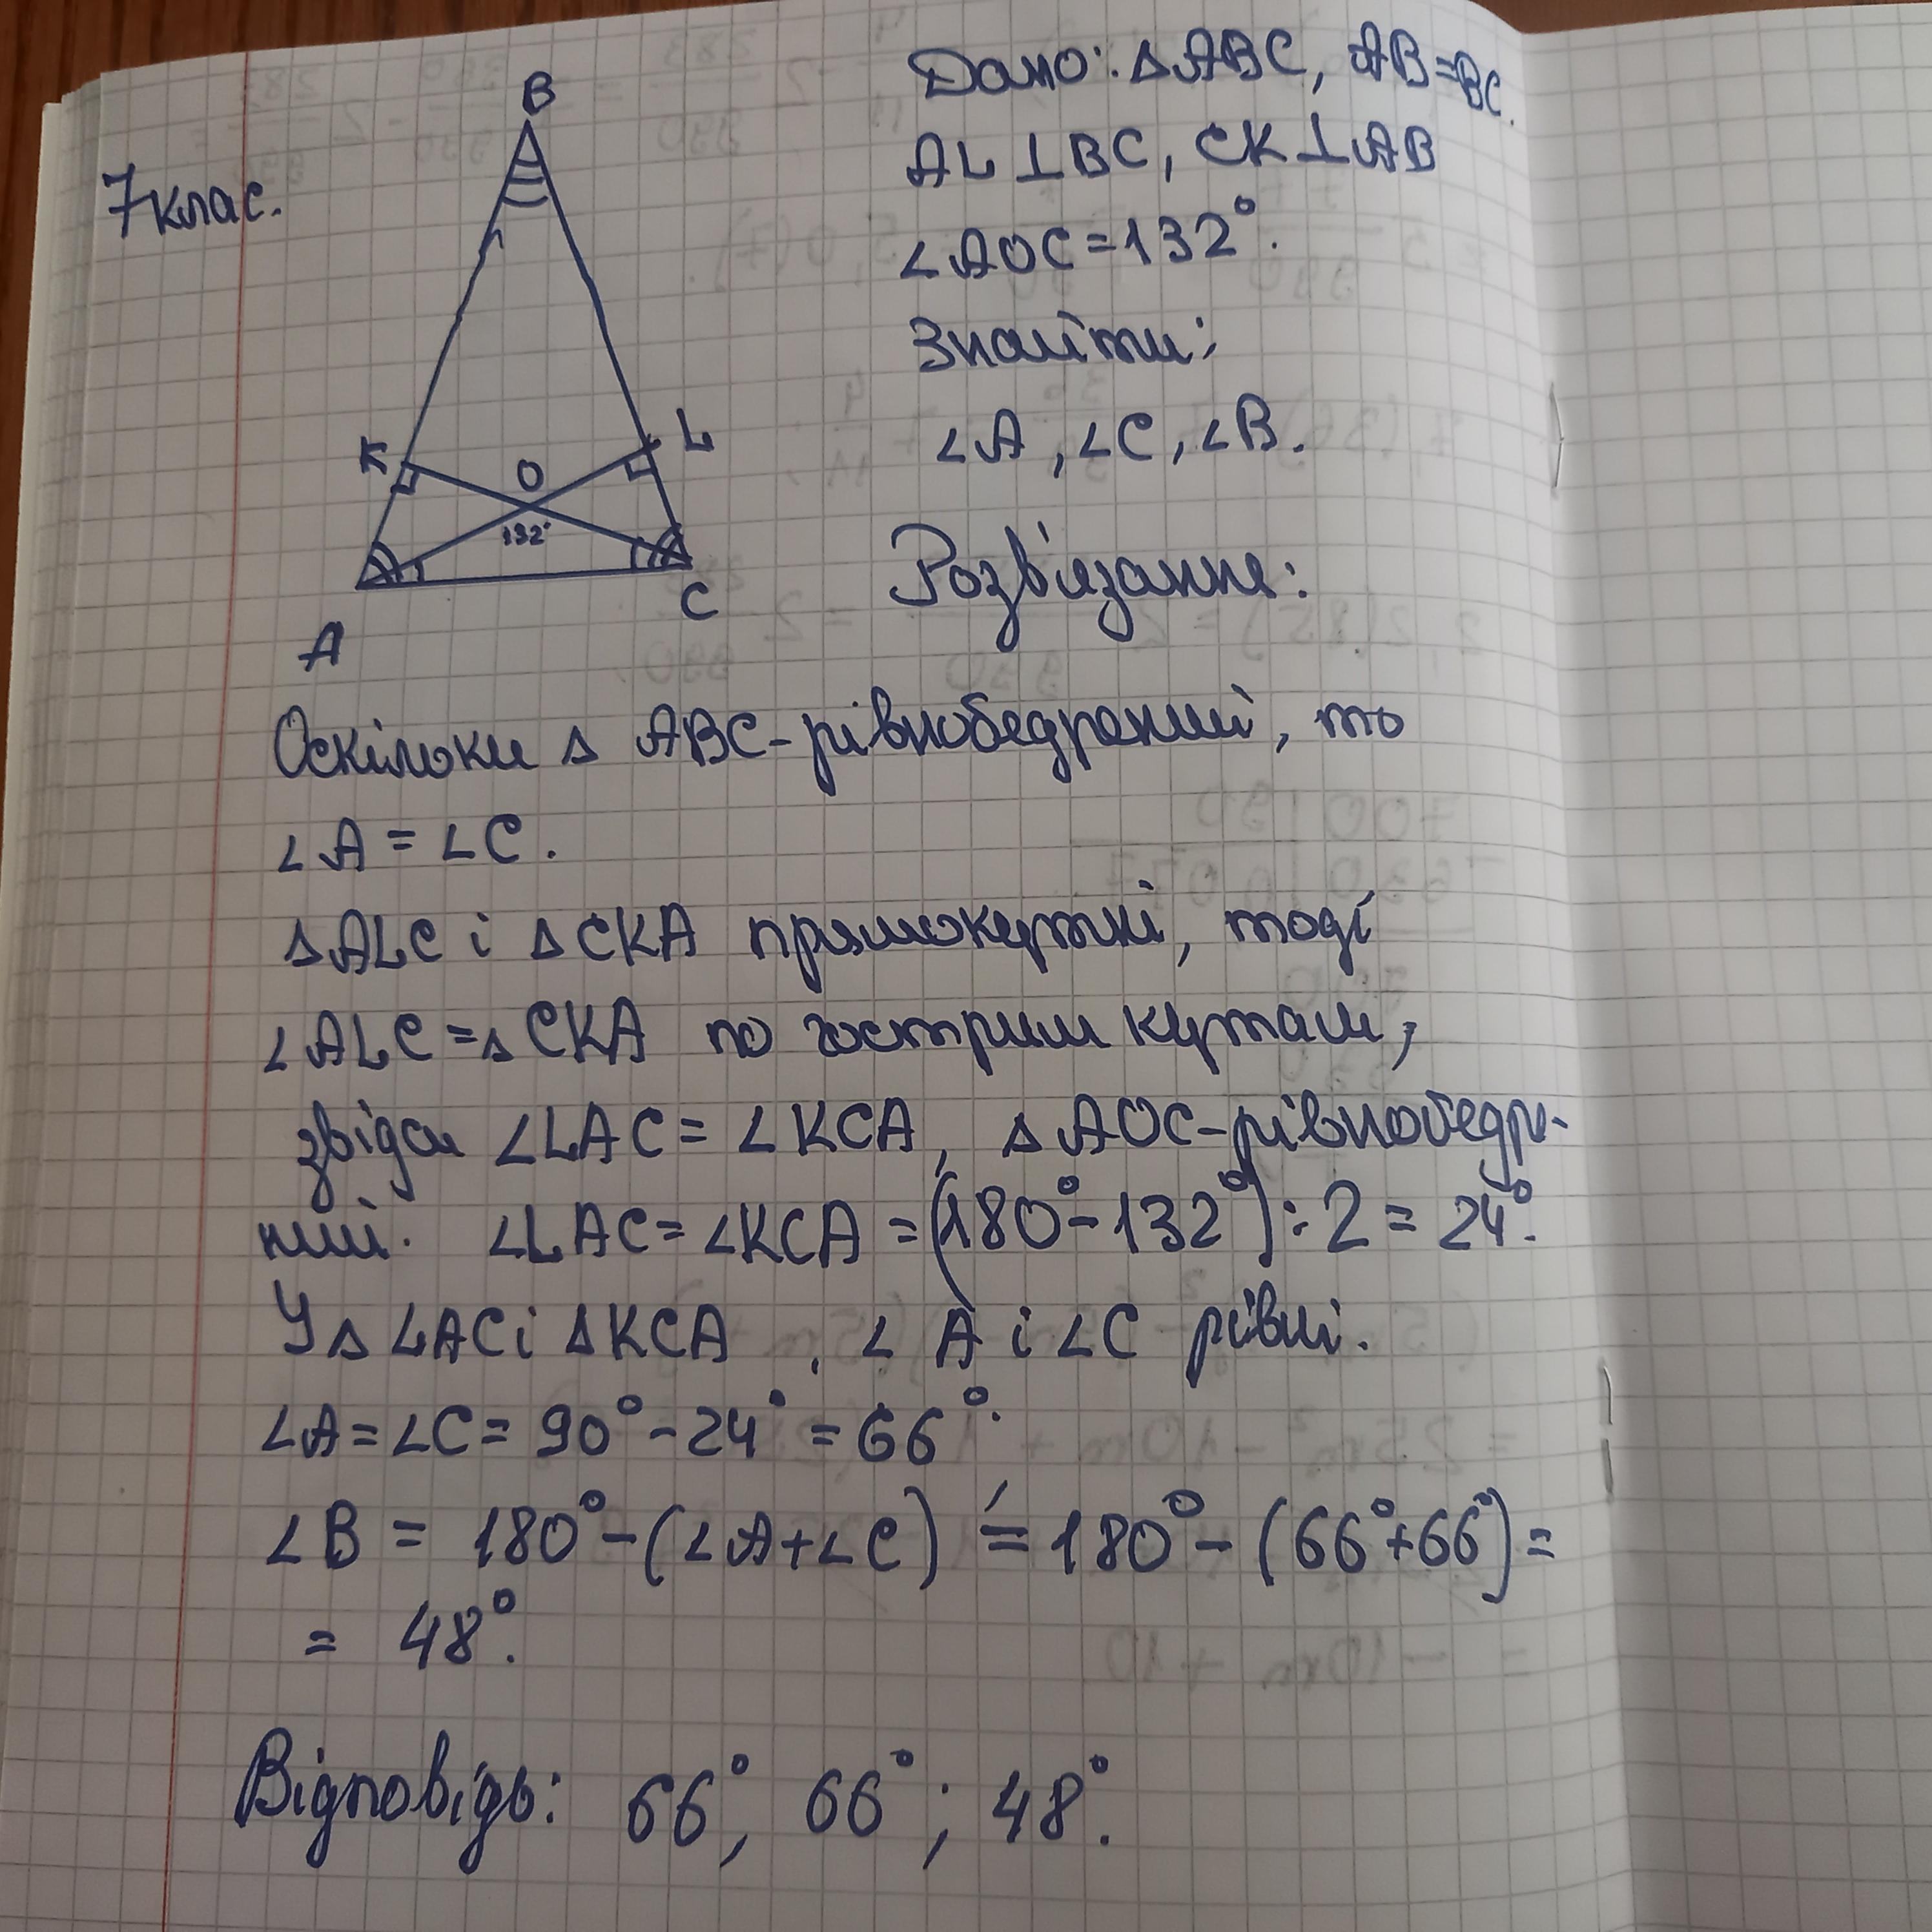 7 клас.
B
K
L
O
132°
A
C
Дано: △ABC, AB=BC.
AL⊥BC, CK⊥AB
∠AOC=132°.
Знайти:
∠A, ∠C, ∠B.
Розв'язання:
Оскільки △ ABC-рівнобедрений, то
∠A = ∠C.
△ALC і △CKA прямокутні, тоді
∠ALC =△ CKA по гострим кутам,
звідси ∠LAC = ∠KCA, △ AOC-рівнобедре-
ний. ∠LAC = ∠KCA = (180°-132°):2 = 24°.
У △ LAC і △KCA , ∠ A і ∠C рівні.
∠A = ∠C = 90°-24° = 66°.
∠B = 180°-(∠A+∠C) = 180°-(66°+66°) =
= 48°.
Відповідь: 66°, 66°; 48°.